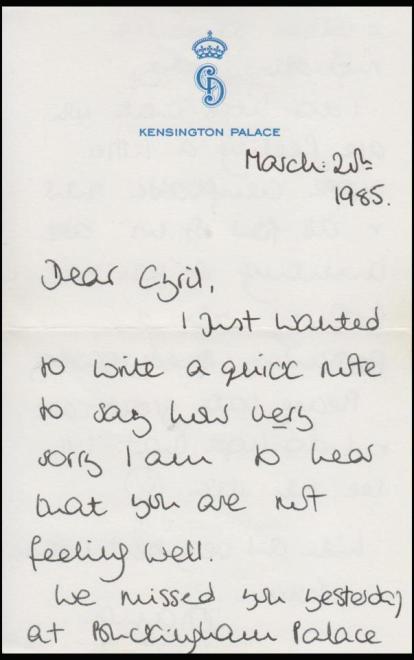 KENSINGTON PALACE
March: 20th
1985.
Dear Cyril,
I just wanted
to write a quick note
to say how very
sorry I am to hear
that you are not
feeling well.
We missed you yesterday
at Buckingham Palace